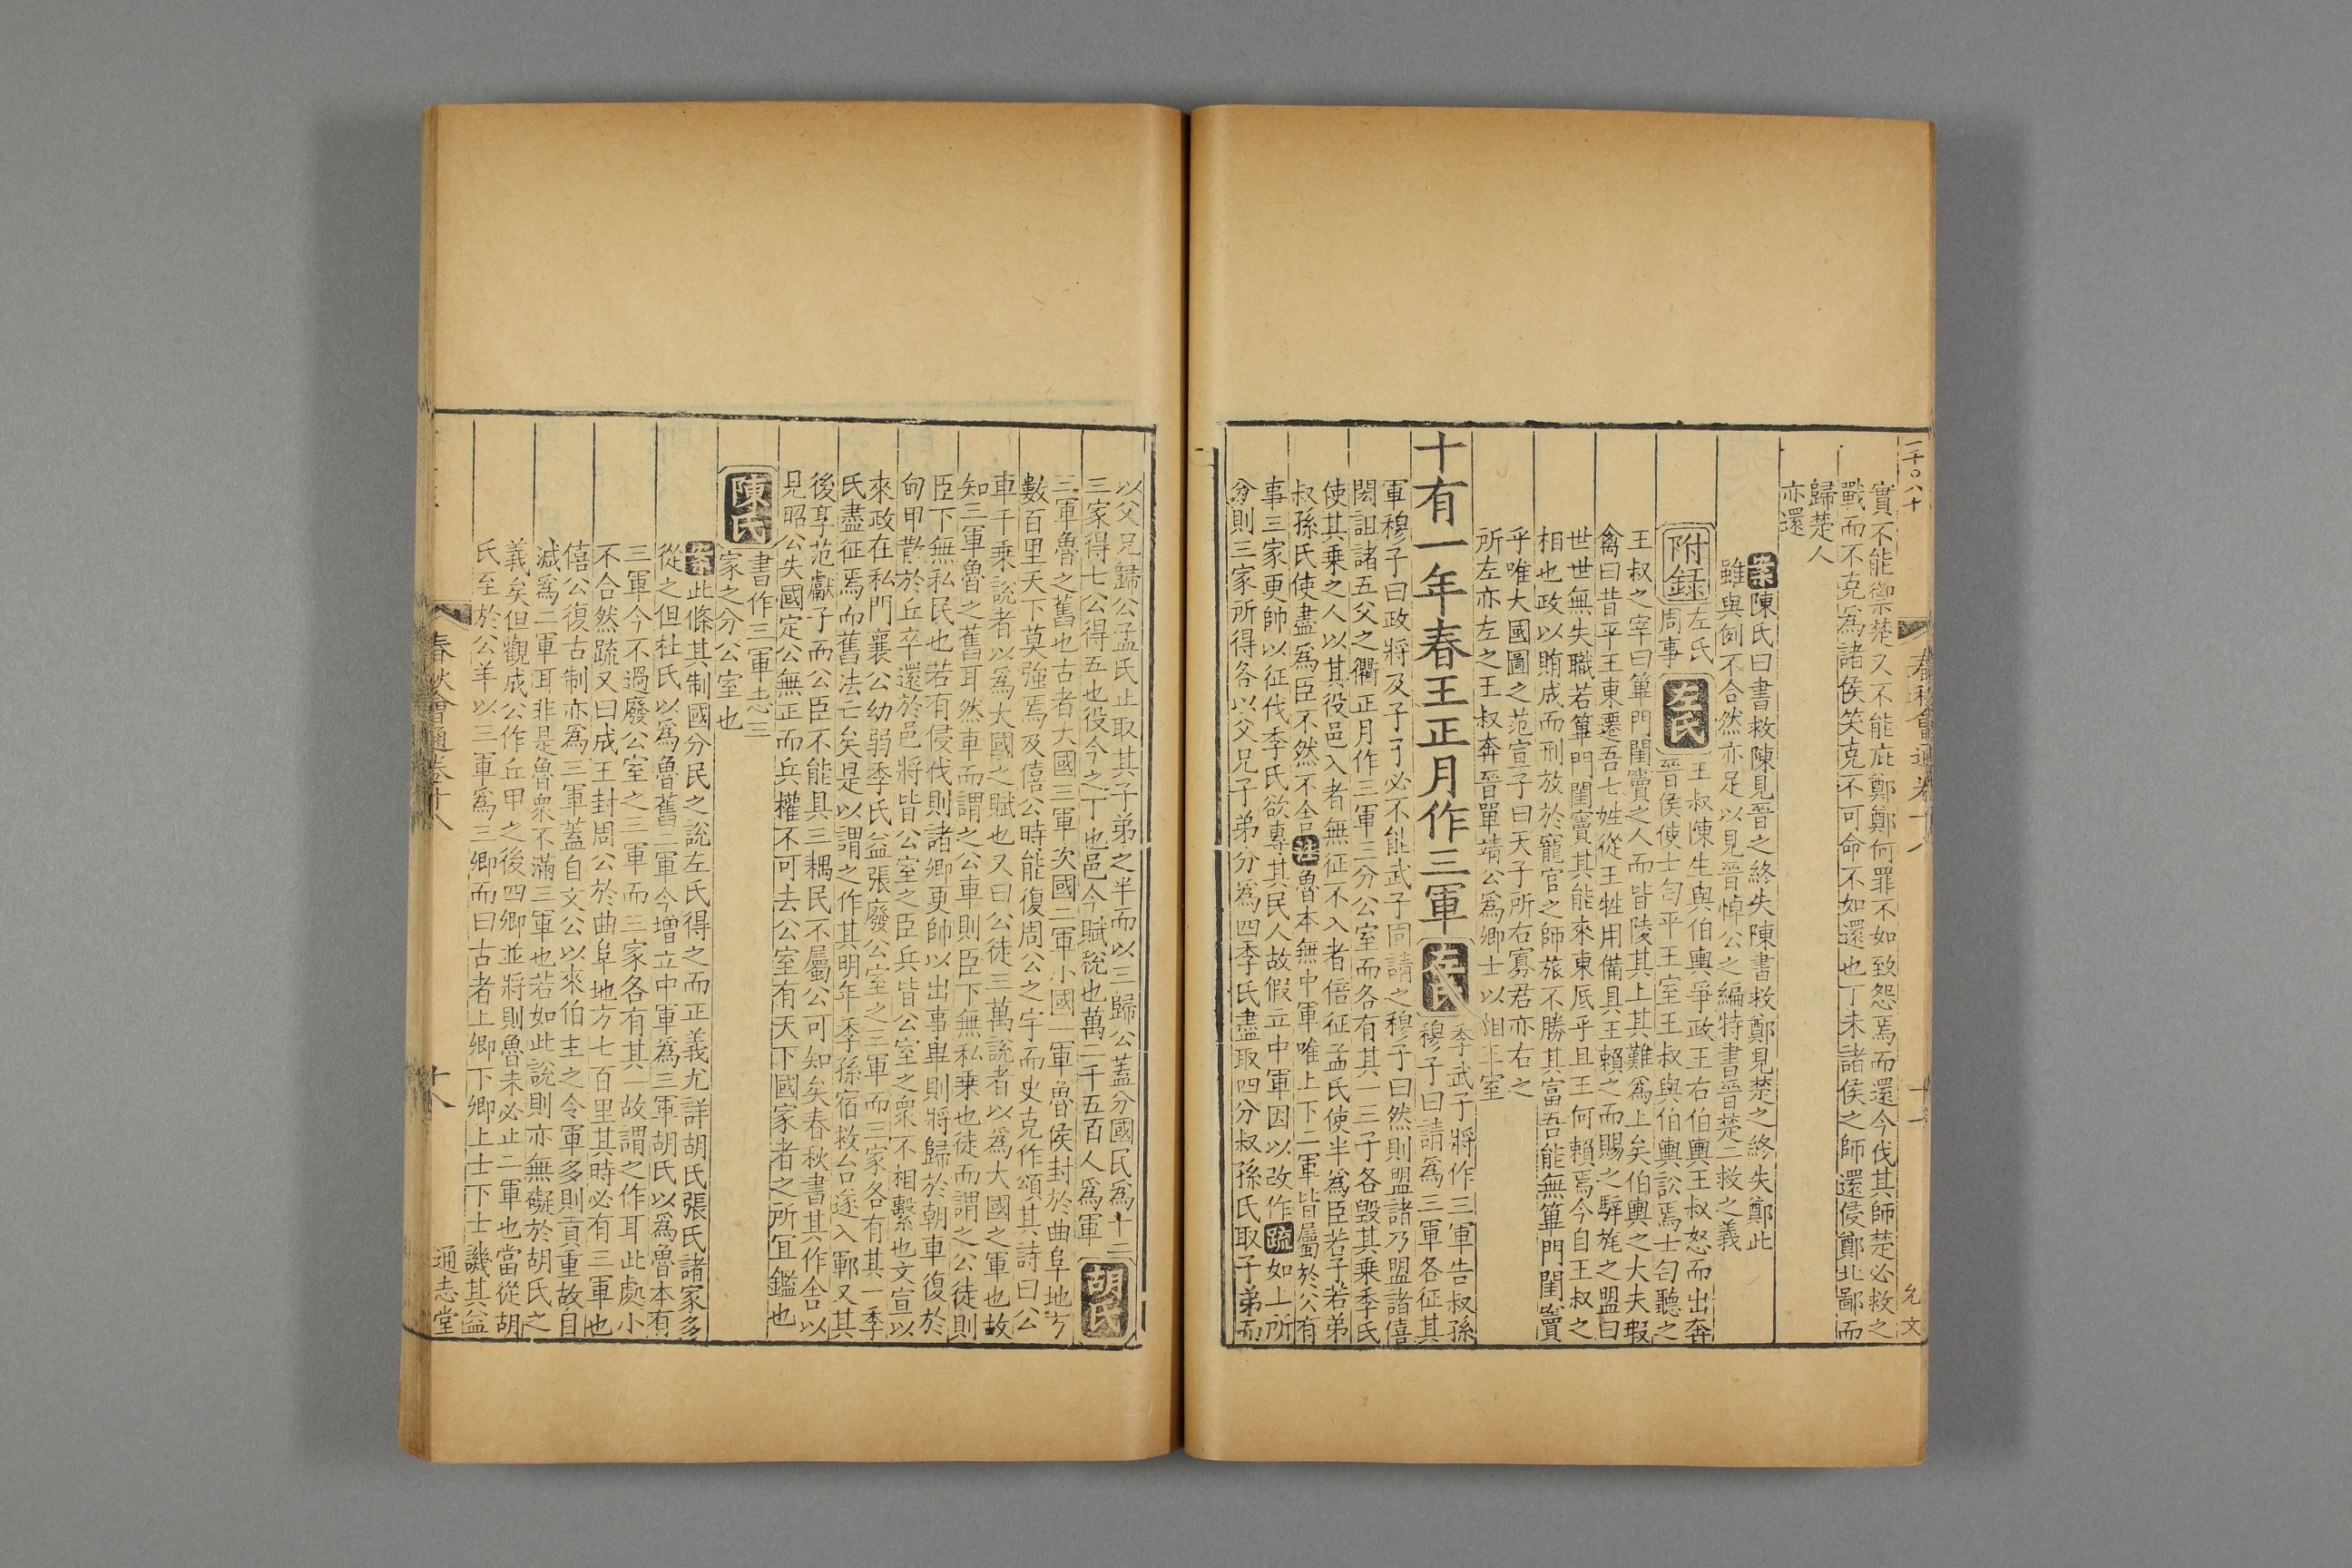 二千〇八十
春秋會通卷十八
十一
允文
實不能禦楚又不能庇鄭鄭何罪不如致怨焉而還今伐其師楚必救之
戰而不克爲諸侯笑克不可命不如還也丁未諸侯之師還侵鄭北鄙而
歸楚人
亦還
案陳氏曰書救陳見晉之終失陳書救鄭見楚之終失鄭此
雖與例不合然亦足以見晉悼公之編特書晉楚二救之義
附録
左氏
周事
左氏
王叔陳生與伯輿爭政王右伯輿王叔怒而出奔
晉侯使士匄平王室王叔與伯輿訟焉士匄聽之
王叔之宰曰篳門閨竇之人而皆陵其上其難爲上矣伯輿之大夫瑕
禽曰昔平王東遷吾七姓從王牲用備具王賴之而賜之騂旄之盟曰
世世無失職若篳門閨竇其能來東厎乎且王何賴焉今自王叔之
相也政以賄成而刑放於寵官之師旅不勝其富吾能無篳門閨竇
乎唯大國圖之范宣子曰天子所右寡君亦右之
所左亦左之王叔奔晉單靖公爲卿士以相王室
十有一年春王正月作三軍
左氏
季武子將作三軍告叔孫
穆子曰請爲三軍各征其
軍穆子曰政將及子子必不能武子固請之穆子曰然則盟諸乃盟諸僖
閎詛諸五父之衢正月作三軍三分公室而各有其一三子各毁其乘季氏
使其乘之人以其役邑入者無征不入者倍征孟氏使半爲臣若子若弟
叔孫氏使盡爲臣不然不舍註魯本無中軍唯上下二軍皆屬於公有
事三家更帥以征伐季氏欲專其民人故假立中軍因以改作疏如上所
分則三家所得各以父兄子弟分爲四季氏盡取四分叔孫氏取子弟而
以父兄歸公孟氏止取其子弟之半而以三歸公蓋分國民爲十二
三家得七公得五也役今之丁也邑今賦稅也萬二千五百人爲軍
胡氏
三軍魯之舊也古者大國三軍次國二軍小國一軍魯侯封於曲阜地方
數百里天下莫強焉及僖公時能復周公之宇而史克作頌其詩曰公
車千乘說者以爲大國之賦也又曰公徒三萬說者以爲大國之軍也故
知三軍魯之舊耳然車而謂之公車則臣下無私乘也徒而謂之公徒則
臣下無私民也若有侵伐則諸卿更帥以出事畢則將歸於朝車復於
甸甲散於丘卒還於邑將皆公室之臣兵皆公室之衆不相繫也文宣以
來政在私門襄公幼弱季氏益張廢公室之三軍而三家各有其一季
氏盡征焉而舊法亡矣是以謂之作其明年季孫宿救台遂入鄆又其
後享范獻子而公臣不能具三耦民不屬公可知矣春秋書其作舍以
見昭公失國定公無正而兵權不可去公室有天下國家者之所宜鑑也
陳氏
書作三軍志三
家之分公室也
案此條其制國分民之說左氏得之而正義尤詳胡氏張氏諸家多
從之但杜氏以爲魯舊二軍今增立中軍爲三軍胡氏以爲魯本有
三軍今不過廢公室之三軍而三家各有其一故謂之作耳此處小
不合然疏又曰成王封周公於曲阜地方七百里其時必有三軍也
僖公復古制亦爲三軍蓋自文公以來伯主之令軍多則貢重故自
減爲二軍耳非是魯衆不滿三軍也若如此說則亦無礙於胡氏之
義矣但觀成公作丘甲之後四卿並將則魯未必止二軍也當從胡
氏至於公羊以三軍爲三卿而曰古者上卿下卿上士下士譏其益
春秋會通卷十八
十八
通志堂